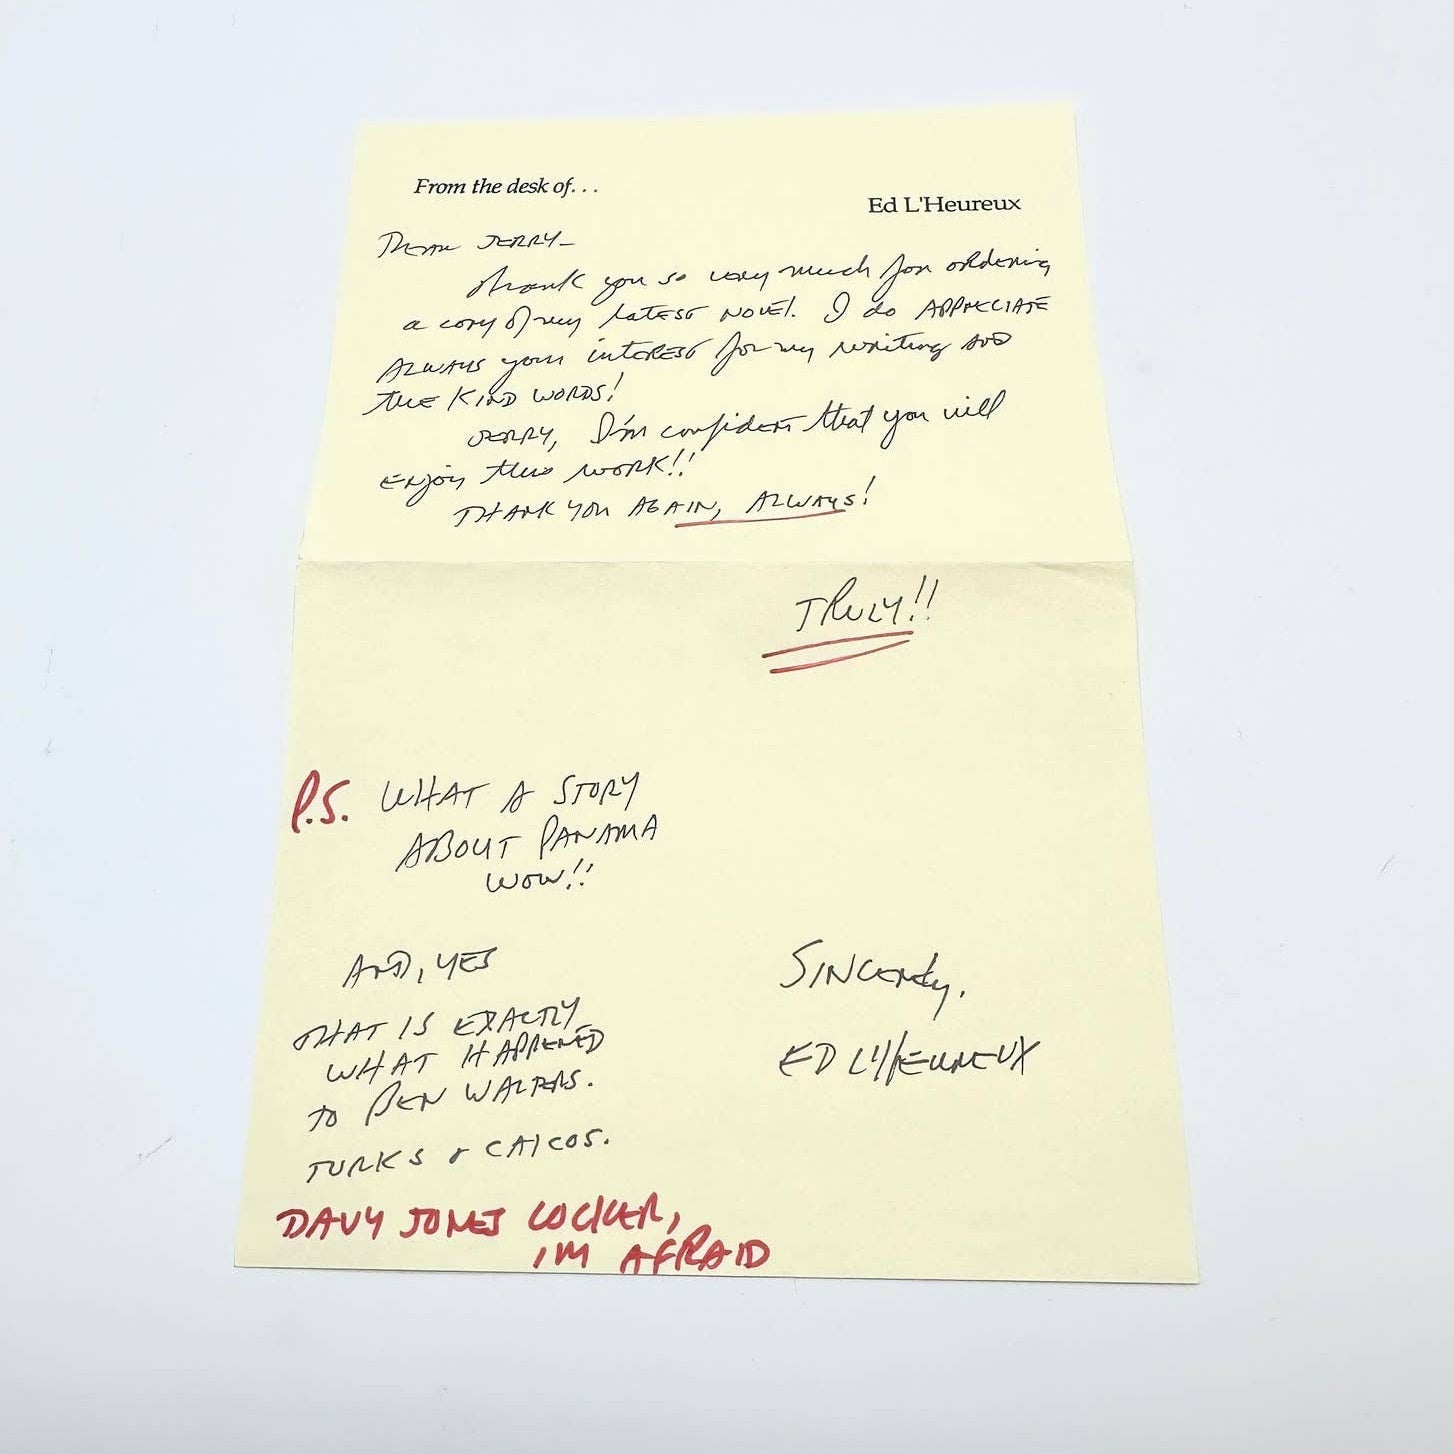 From the desk of...
Ed L'Heureux
DEAR JERRY-
Thank you so very much for ordering
a copy of my latest novel. I do APPRECIATE
ALWAYS your interest for my writing AND
THE KIND WORDS!
JERRY, I'm confident that you will
ENJOY this WORK!!
THANK YOU AGAIN, ALWAYS!
TRULY!!
P.S. WHAT A STORY
ABOUT PANAMA
WOW!!
AND, YES
THAT IS EXACTLY
WHAT HAPPENED
TO BEN WALTERS.
TURKS & CAICOS.
DAVY JONES LOCKER,
I'M AFRAID
SINCERELY,
ED L'HEUREUX